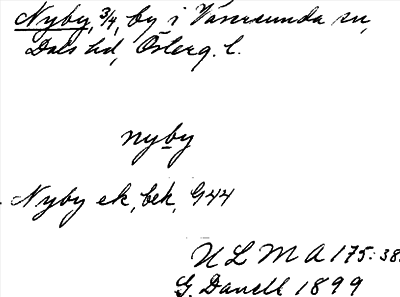 Nyby, 3/4, by i Vänersunda sn,
Dals hd, Österg. l.
nyby
Nyby ek, bek, G44
ULMA 175:38.
G. Danell 1899